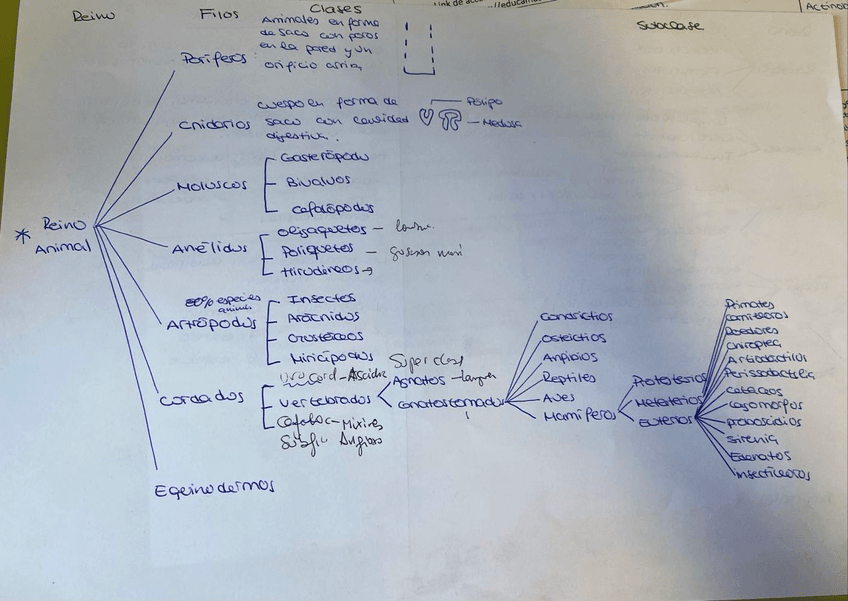 Reino
Filos
Clases
Subclase
Actinob
Poríferos
Animales en forma
de saco con poros
en la pared y un
orificio arriba
Cnidarios
cuerpo en forma de
saco con cavidad
digestiva.
Pólipo
Medusa
Moluscos
Gasterópodo
Bivalvos
Cefalópodos
* Reino
Animal
Anélidos
Oligaquetos
Poliquetos
Hirudineos
80% especies
Artrópodos
Insectos
Arácnidos
Crustáceos
Miriápodos
Cordados
Uro Cord - Ascidia
Vertebrados
Superclase
Agnatos
Gnatostomados
Condrictios
Osteictios
Anfibios
Reptiles
Aves
Mamíferos
Prototerios
Metaterios
Euterios
Primates
Carnívoros
Roedores
Chiroptea
Artiodactilos
Perissodactylia
Cetáceos
Lagomorfos
Proboscidios
Sirenia
Edentatos
Insectívoros
Equinodermos